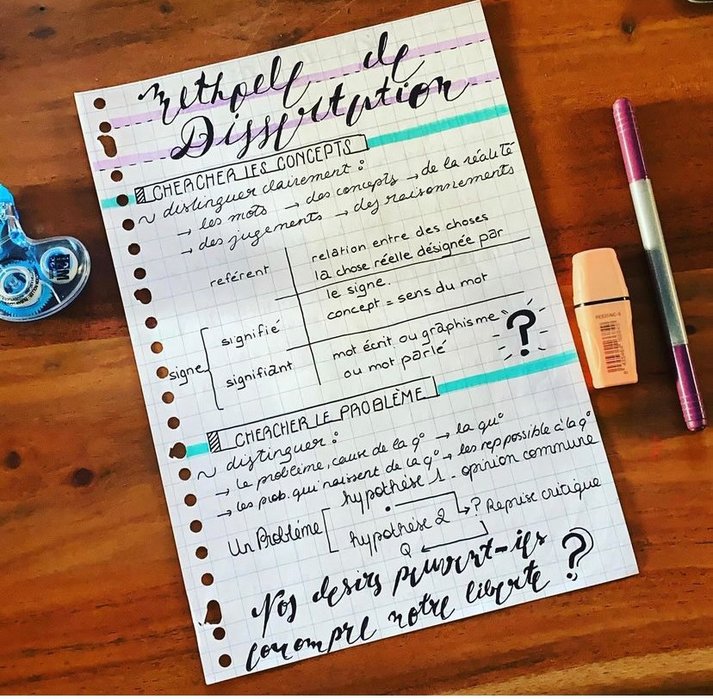 Méthode de
Dissertation
CHERCHER LES CONCEPTS
~ distinguer clairement :
→ les mots → des concepts → de la réalité
→ des jugements → des raisonnements
référent
relation entre des choses
la chose réelle désignée par
le signe.
signe
signifié
concept = sens du mot
signifiant
mot écrit ou graphisme
ou mot parlé
?
CHERCHER LE PROBLÈME
~ distinguer :
→ le problème, cause de la q° → la q°
→ les prob. qui naissent de la q° → les rep possible à la q°
Un Problème
hypothèse 1 - opinion commune
hypothèse 2
? Reprise critique
Q
Nos desirs peuvent-ils
corrompre notre liberte ?